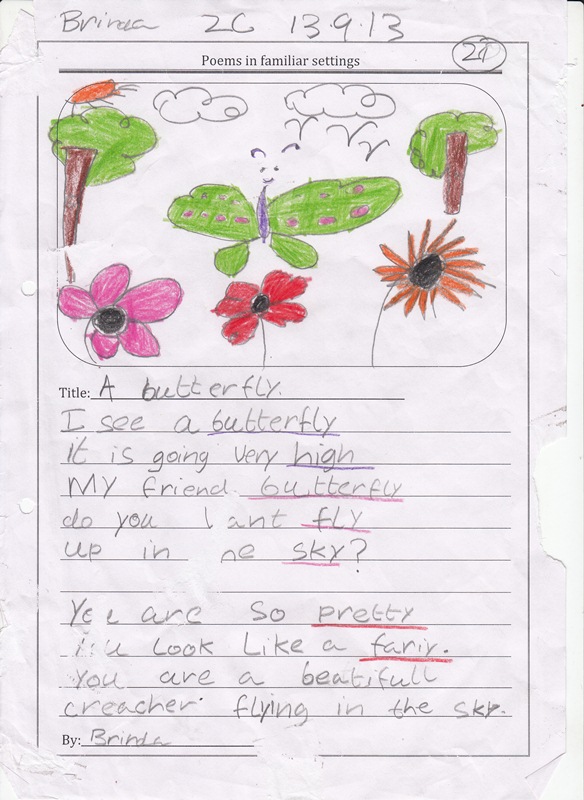 Brinda 2C 13.9.13
Poems in familiar settings
Title: A butterfly.
I see a butterfly
It is going very high
My friend butterfly
do you ant fly
up in sky?
You are so pretty
You look like a fariy.
You are a beatifull
creacher flying in the sky.
By: Brinda